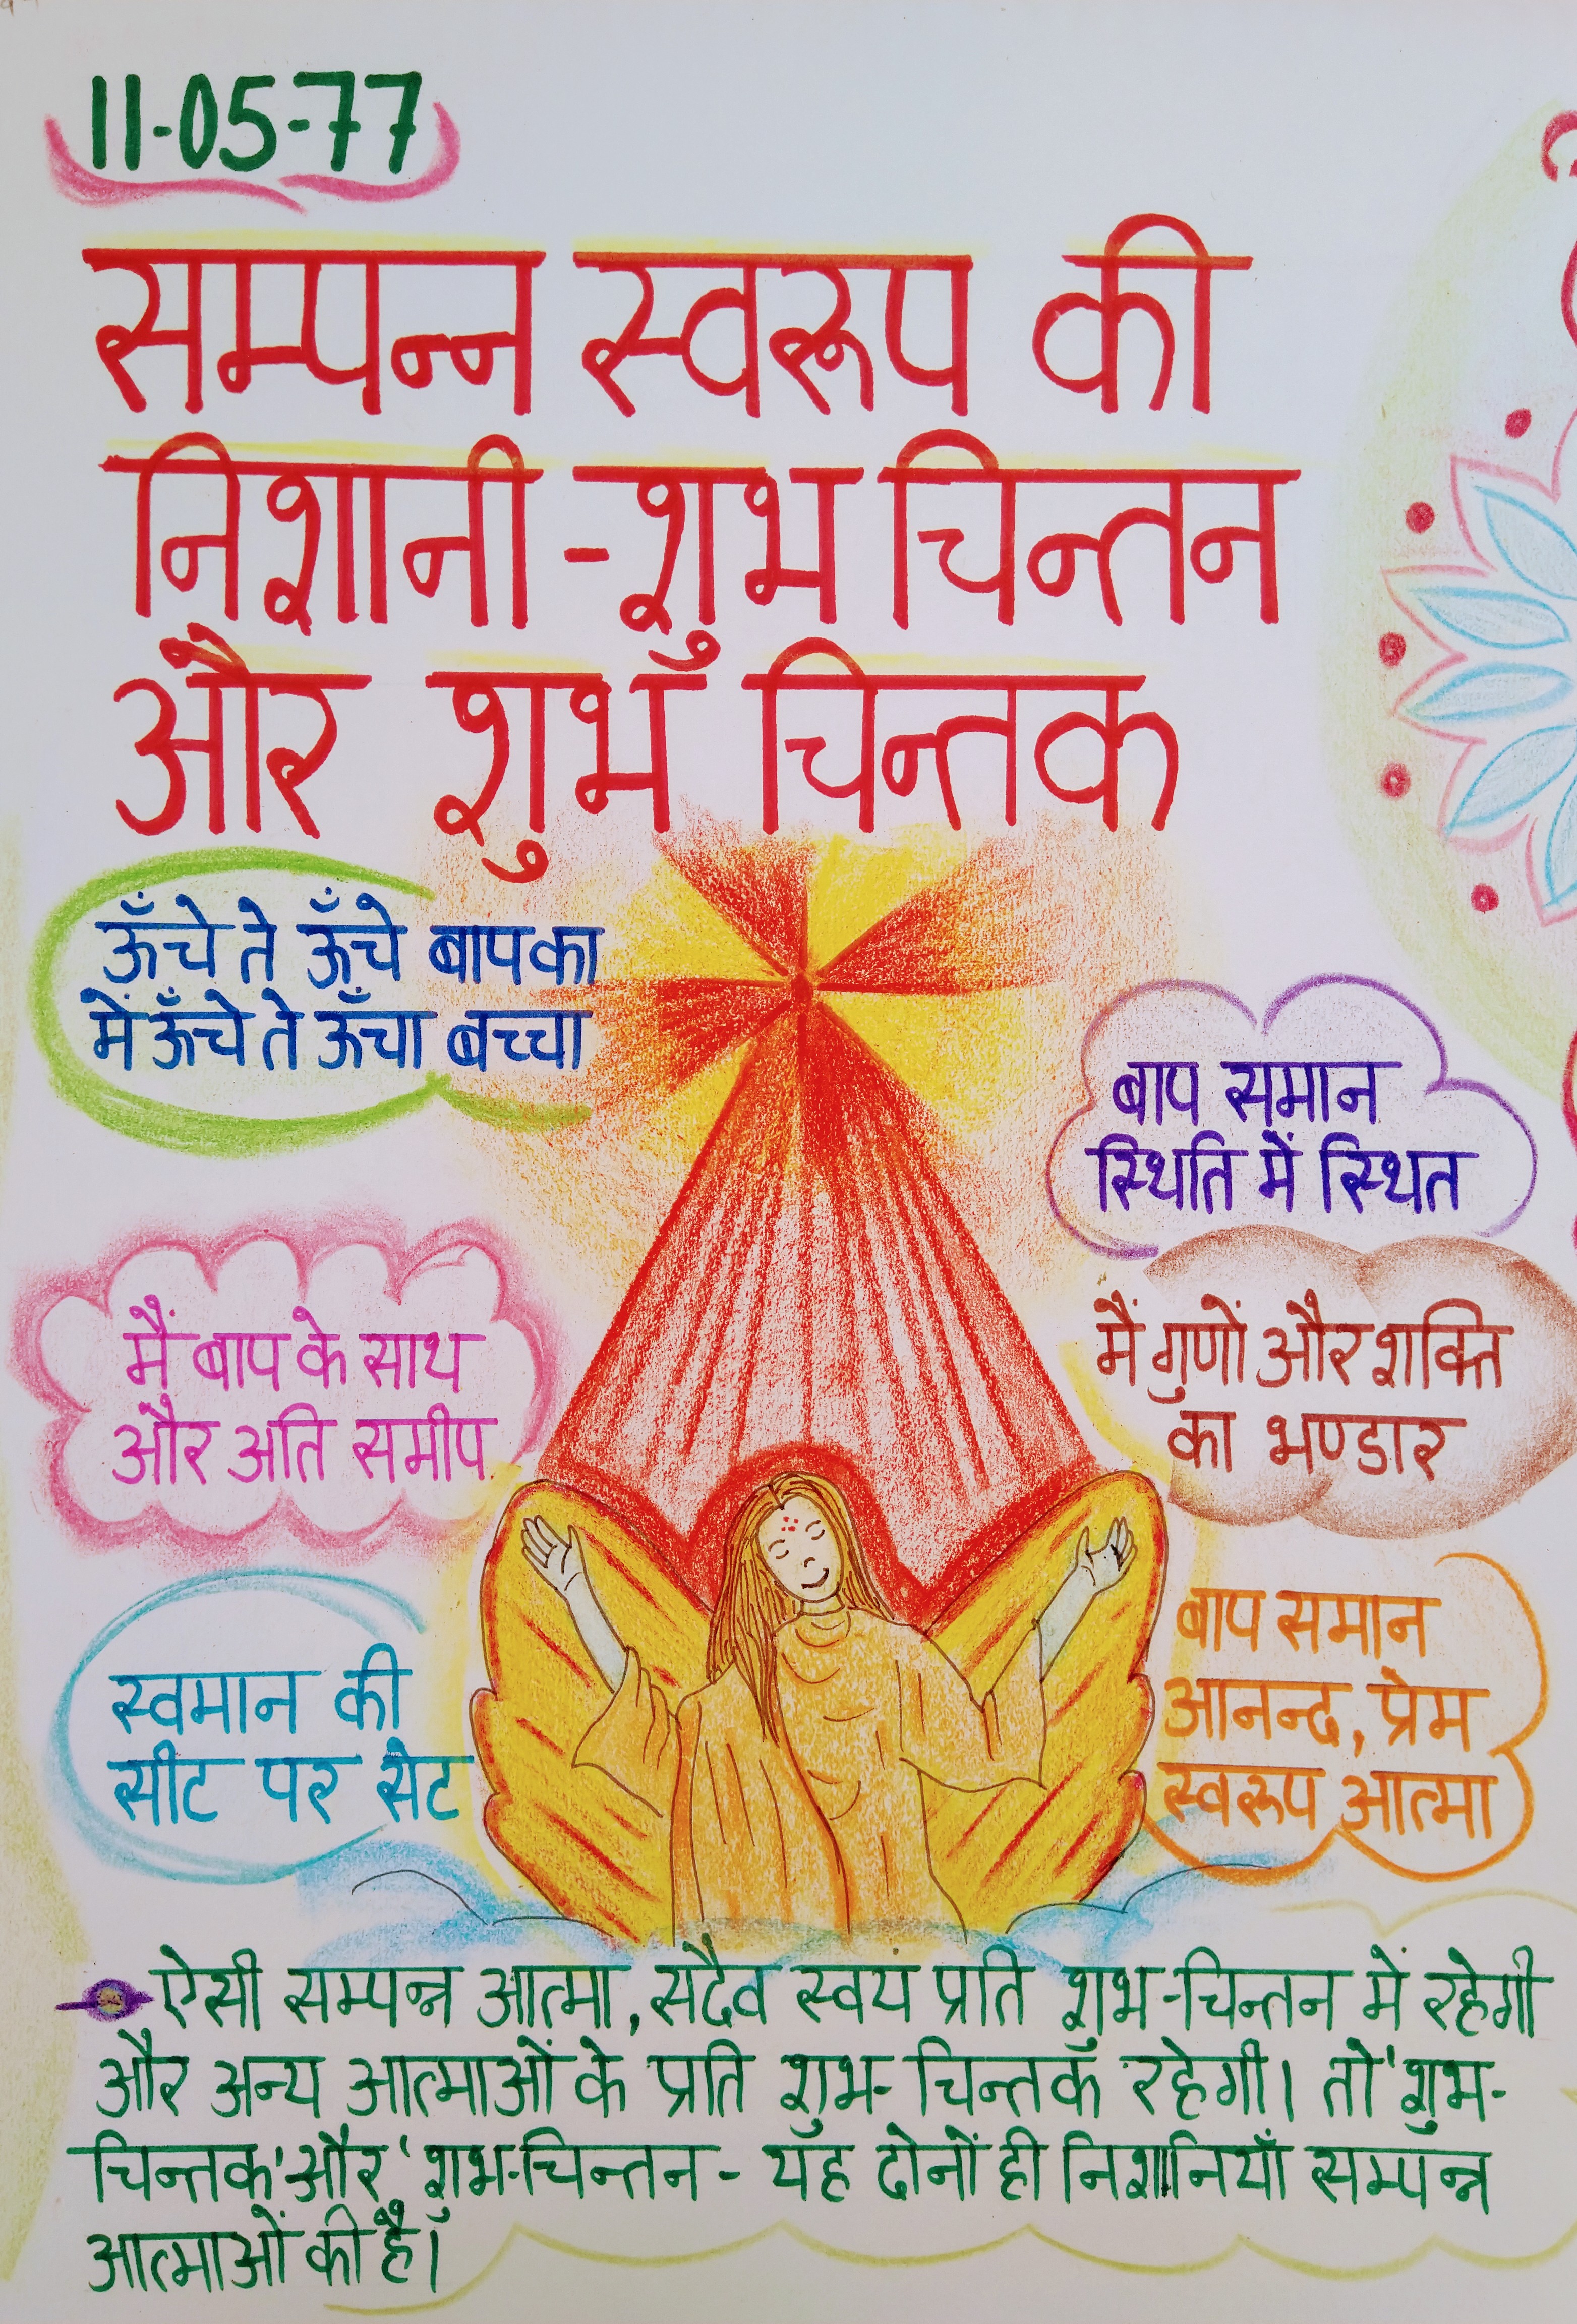 11-05-77
सम्पन्न स्वरूप की
निशानी - शुभ चिन्तन
और शुभ चिन्तक
ऊँचे ते ऊँचे बाप का
में ऊँचे ते ऊँचा बच्चा
बाप समान
स्थिति में स्थित
मैं बाप के साथ
और अति समीप
मैं गुणों और शक्ति
का भण्डार
स्वमान की
सीट पर सेट
बाप समान
आनन्द, प्रेम
स्वरूप आत्मा
ऐसी सम्पन्न आत्मा, सदैव स्वयं प्रति शुभ-चिन्तन में रहेगी
और अन्य आत्माओं के प्रति शुभ-चिन्तक रहेगी। तो 'शुभ-
चिन्तक' और 'शुभ-चिन्तन - यह दोनों ही निशानियाँ सम्पन्न
आत्माओं की है।